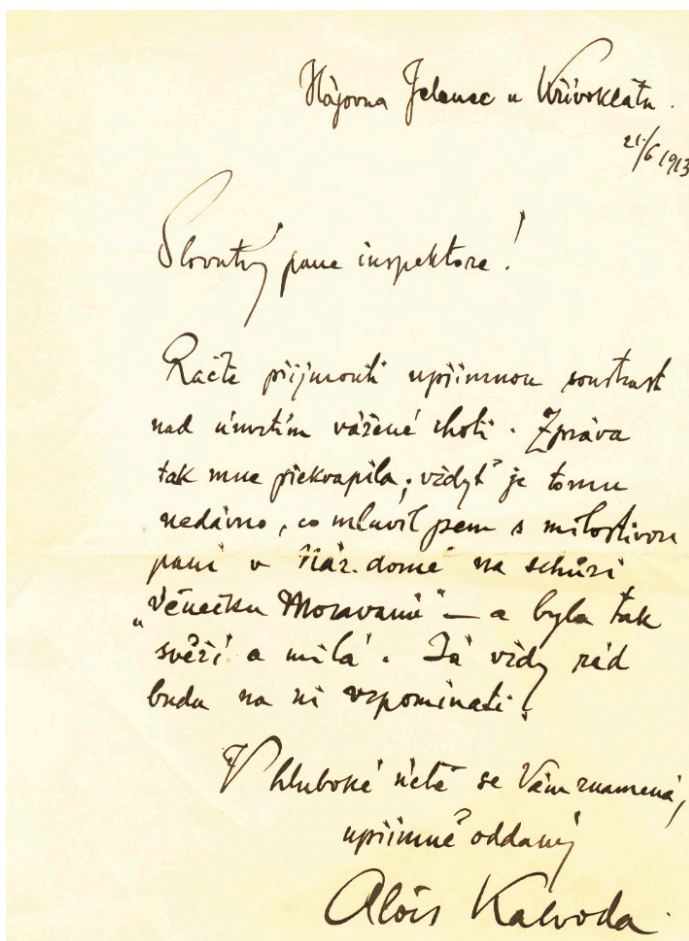 Hájovna Jelenec u Křivoklátu.
21/6 1913
Slovutný pane inspektore!
Račte přijmouti upřímnou soustrast
nad úmrtím vážené choti. Zpráva
tak mne překvapila; vždyť je tomu
nedávno, co mluvil jsem s milostivou
paní v Nár. domě na schůzi
„Věnečku Moravanů" — a byla tak
svěží a milá. Já vždy rád
budu na ni vzpomínati!
V hluboké úctě se Vám znamená,
upřímně oddaný
Alois Kalvoda.